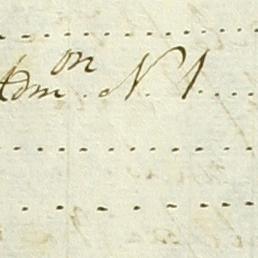 Adm on N. 1.